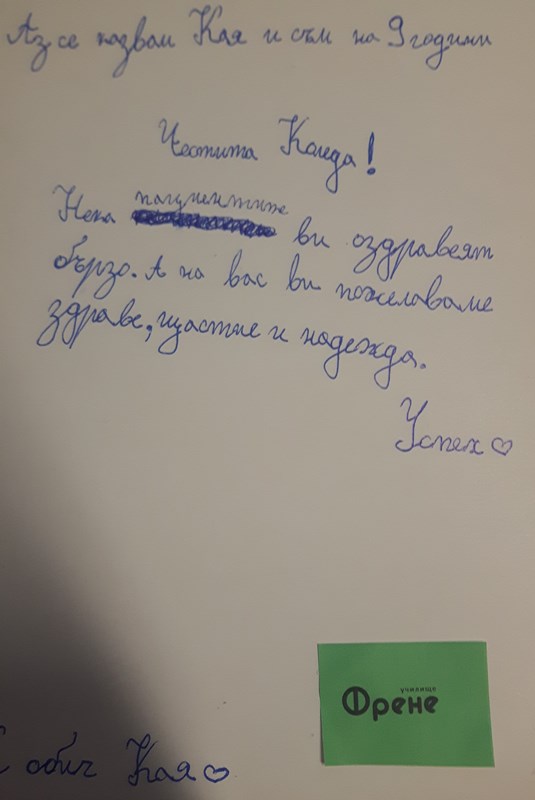 Аз се казвам Кая и съм на 9 години
Честита Коледа!
Нека пациентите ви оздравеят
бързо. А на вас ви пожелаваме
здраве, щастие и надежда.
Успех ♡
училище
Френе
С обич Кая ♡